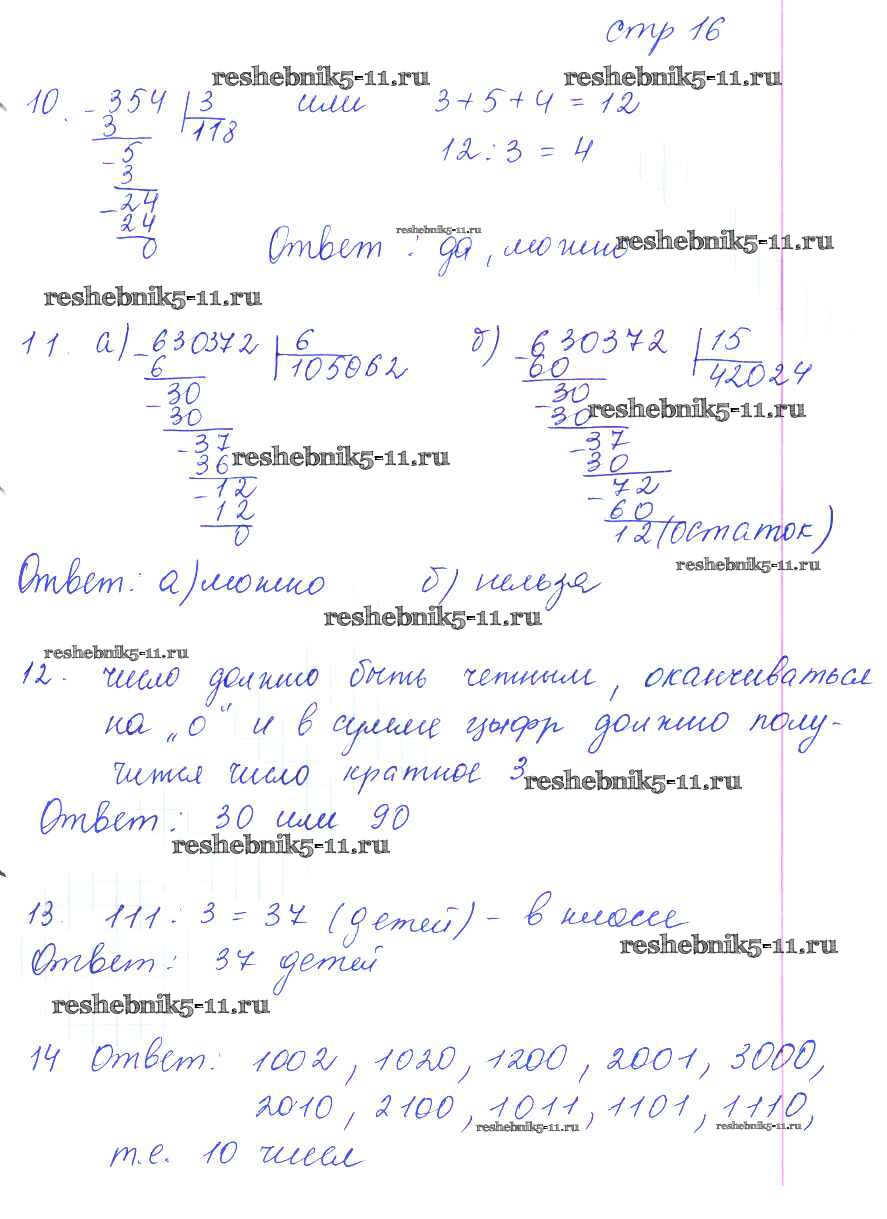 стр 16
reshebnik5-11.ru reshebnik5-11.ru
10. - 354 | 3 или 3 + 5 + 4 = 12
3 118
- 5 12 : 3 = 4
3
- 24
24
0
reshebnik5-11.ru
Ответ : да, можно reshebnik5-11.ru
reshebnik5-11.ru
11. а) - 630372 | 6 б) - 630372 | 15
6 105062 60 42024
- 30 - 30
30 30 reshebnik5-11.ru
- 37 - 37
36 reshebnik5-11.ru 30
- 12 - 72
12 60
0 12 (остаток)
reshebnik5-11.ru
Ответ: а) можно б) нельзя
reshebnik5-11.ru
reshebnik5-11.ru
12. число должно быть четным, оканчиваться
на „0" и в сумме цыфр должно полу-
читься число кратное 3 reshebnik5-11.ru
Ответ: 30 или 90
reshebnik5-11.ru
13. 111 : 3 = 37 (детей) - в классе
reshebnik5-11.ru
Ответ: 37 детей
reshebnik5-11.ru
14 Ответ: 1002, 1020, 1200, 2001, 3000,
2010, 2100, 1011, 1101, 1110,
reshebnik5-11.ru reshebnik5-11.ru
т.е. 10 чисел